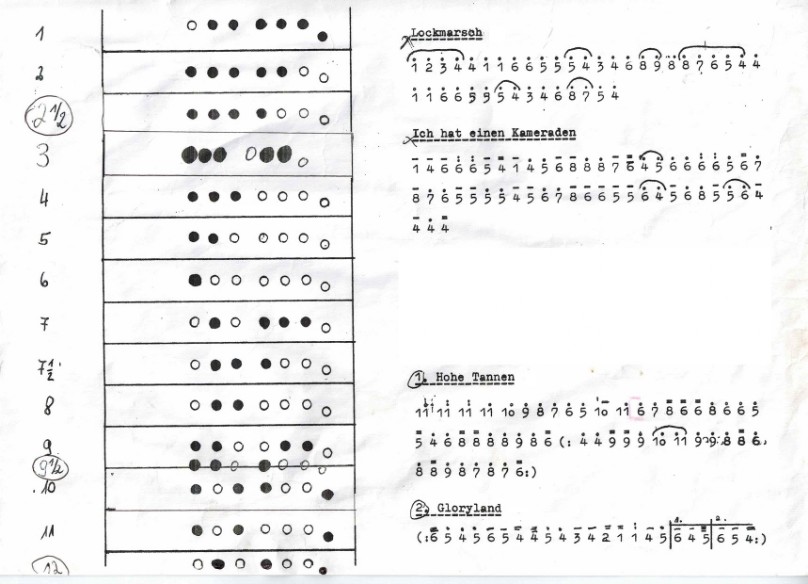 1
2
2 1/2
3
4
5
6
7
7 1/2
8
9
9 1/2
10
11
12
Lockmarsch
1 2 3 4 4 1 1 6 6 5 5 5 4 3 4 6 8 9 8 8 7 6 5 4 4
1 1 6 6 5 5 5 4 3 4 6 8 7 5 4
Ich hat einen Kameraden
1 4 6 6 6 5 4 1 4 5 6 8 8 8 7 6 4 5 6 6 6 6 5 6 7
8 7 6 5 5 5 5 4 5 6 7 8 6 6 5 5 6 4 5 6 8 5 5 6 4
4 4 4
1. Hohe Tannen
11 11 11 11 10 9 8 7 6 5 10 11 6 7 8 6 6 8 6 6 5
5 4 6 8 8 8 8 9 8 6 (: 4 4 9 9 9 10 11 9 9 8 8 6
8 8 9 8 7 8 7 6:)
2. Gloryland
1. 2.
(:6 5 4 5 6 5 4 4 5 4 3 4 2 1 1 4 5 6 4 5 6 5 4:)